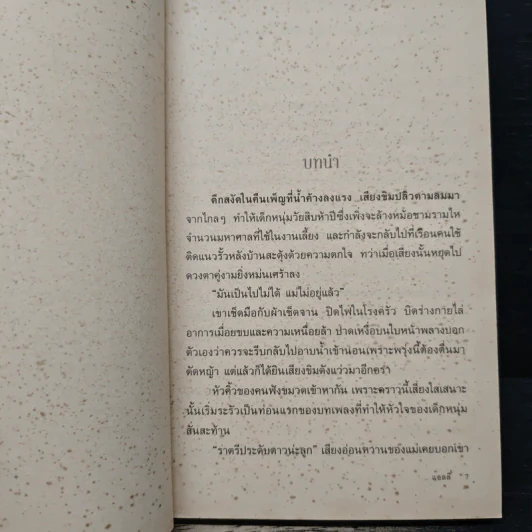 บทนำ
ดึกสงัดในคืนเพ็ญที่น้ำค้างลงแรง เสียงขิมปลิวตามลมมา
จากไกลๆ ทำให้เด็กหนุ่มวัยสิบห้าปีซึ่งเพิ่งจะล้างหม้อชามรามไห
จำนวนมหาศาลที่ใช้ในงานเลี้ยง และกำลังจะกลับไปที่เรือนคนใช้
ติดแนวรั้วหลังบ้านสะดุ้งด้วยความตกใจ ทว่าเมื่อเสียงนั้นหยุดไป
ดวงตาคู่งามยิ่งหม่นเศร้าลง
“มันเป็นไปไม่ได้ แม่ไม่อยู่แล้ว”
เขาเช็ดมือกับผ้าเช็ดจาน ปิดไฟในโรงครัว บิดร่างกายไล่
อาการเมื่อยขบและความเหนื่อยล้า ปาดเหงื่อบนใบหน้าพลางบอก
ตัวเองว่าควรจะรีบกลับไปอาบน้ำเข้านอนเพราะพรุ่งนี้ต้องตื่นมา
ตัดหญ้า แต่แล้วก็ได้ยินเสียงขิมดังแว่วมาอีกครา
หัวคิ้วของคนฟังขมวดเข้าหากัน เพราะคราวนี้เสียงใสเสนาะ
นั้นเริ่มระรัวเป็นท่อนแรกของบทเพลงที่ทำให้หัวใจของเด็กหนุ่ม
สั่นสะท้าน
“ราตรีประดับดาวน่ะลูก” เสียงอ่อนหวานของแม่เคยบอกเขา
แชลลี 7